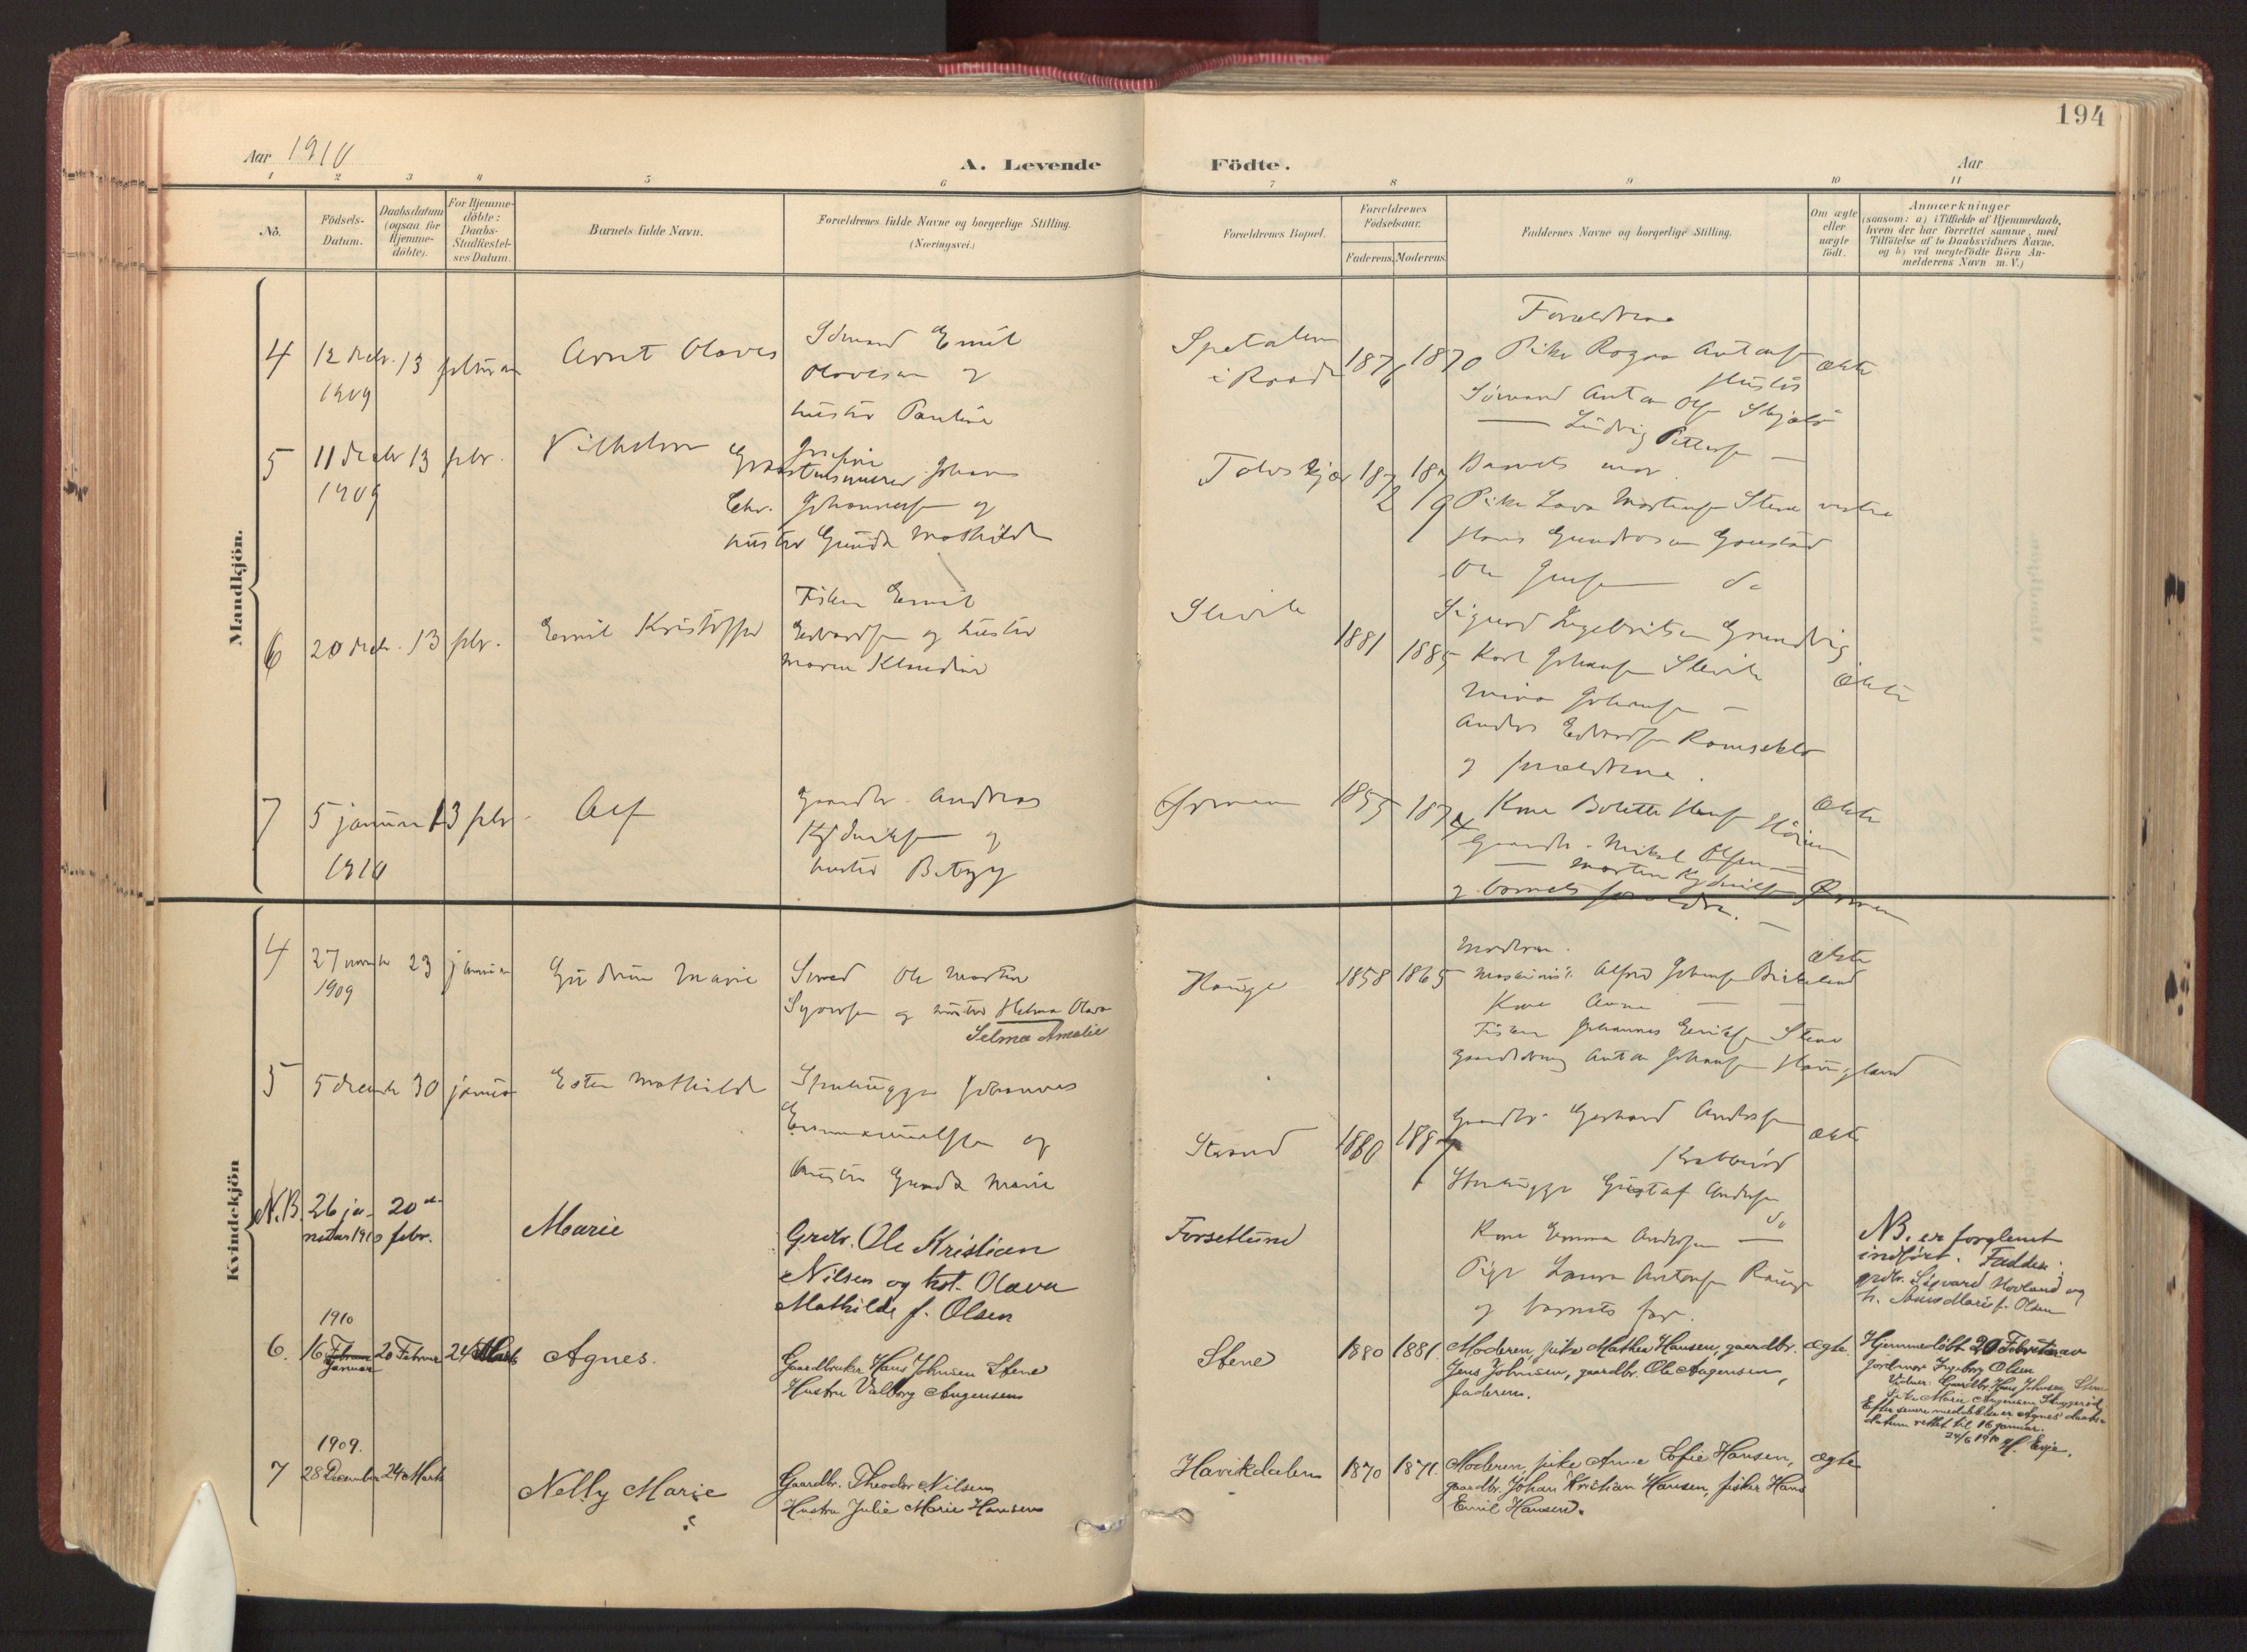 194
Aar 1910
A. Levende Födte.
Aar
1 2 3 4 5 6 7 8 9 10 11
No.
Födsels-
Datum.
Daabsdatum
(ogsaa for
Hjemme-
döbte).
For Hjemme-
döbte:
Daabs-
Stadfæstel-
ses Datum.
Barnets fulde Navn.
Forældrenes fulde Navne og borgerlige Stilling.
(Næringsvei.)
Forældrenes Bopæl.
Forældrenes
Födselsaar.
Faderens. Moderens.
Faddernes Navne og borgerlige Stilling.
Om ægte
eller
uægte
födt.
Anmærkninger
(saasom: a) i Tilfælde af Hjemmedaab,
hvem der har forrettet samme, med
Tilföielse af to Daabsvidners Navne.
og b) ved uægtefödte Börn An-
melderens Navn m. V.)
Mandkjön.
4
12 decbr. 13 februar
1909
Arnt Olaves
Sömand Emil
Olavesen og
hustru Pauline
Spetalen
i Raade
1876 1870
Forældrene
Pike Ragna Antonsen
Sömand Anton Olsen
Ludvig Pettersen
ækte
5
11 decbr 13 febr.
1909
Vilhelm
Johans
Chr. Johannessen og
hustru Gunda Mathilde
1872 1879
Barnets mor
Pike Lava Martinsen Stene vestre
Hans Gundersen
Ole Jensen do
6
20 decbr. 13 febr.
Emil Kristoffer
Fisker Emil
Edvardsen og hustru
Maren Klaudine
Slevik
1881 1885
Sigurd Ingebritsen
Karl Johansen Slevik
Mina Johansen —
Anders Edvardsen
og forældrene.
ækte
7
5 januar 13 febr
1910
Alf
Gaardbr. Andreas
og
hustru Betzy
1855 1874
Kone Bolette Hansen
Gaardbr. Mikal Olsen —
Morten
og barnets forældre.
ækte
Kvindekjön
4
27 novembr 23 januar
1909
Gudrun Marie
Ole Martin
Syversen og hustru Helma Olava
Selma Amalie
Hauge
1858 1865
Moderen.
Maskinist Alfred Johansen Birkelund
Kone Anna — —
Fisker Johannes Emilsen Stene
Anton Johansen Haugland
ækte
5
5 decembr 30 januar
Ester Mathilde
Stenhugger Johannes
Emmanuelsen og
hustru Gunda Marie
Strand
1880 1887
Gaardbr. Gerhard Andersen
Stenhugger Gustaf Andersen
Kone Emma Andersen — do
Pige Laura Antonsen
og barnets far.
ækte
N.B. 26 ja- 20de
nuar 1910 febr.
Marie
Grdbr. Ole Kristian
Nilsen og hst. Olava
Mathilde f. Olsen
Forsetlund
NB. er forglemt
indført. Faddere:
grdbr. Sigvard Hovland og
h. Anne Marie f. Olsen
1910
6. 16 Februar 20 Februar 24 Marts
Januar
Agnes.
Gaardbruker Hans Johnsen Stene
Hustru Valborg Augensen
Stene
1880 1881.
Moderen, pike Mathea Hansen, gaardbr.
Jens Johnsen, gaardbr. Ole Augensen,
faderen.
ægte.
Hjemmedöbt 20 Februar av
Jordmor Ingeborg Olsen
Vidner: Gaardbr. Hans Johnsen Stene
Pike Marie Augensen
Efter senere meddelelse er Agnes'
datum rettet til 16 januar.
24/6 1910 H. Evje.
1909.
7 28 December 24 Marts
Nelly Marie
Gaardbr. Theodor Nilsen
Hustru Julie Marie Hansen
Havikdalen
1870 1871.
Moderen, pike Anne Sofie Hansen,
gaardbr. Johan Kristian Hansen, fisker Hans
Emil Hansen.
ægte